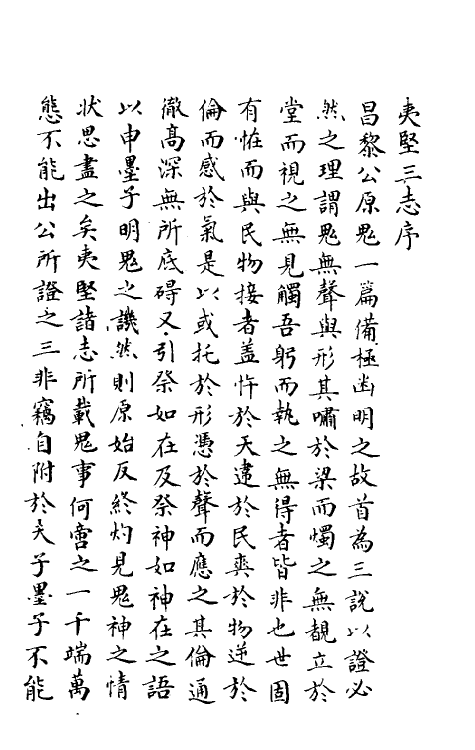 夷堅三志序
昌黎公原鬼一篇備極幽明之故首為三說以證必
然之理謂鬼無聲與形其嘯於梁而燭之無覩立於
堂而視之無見觸吾躬而執之無得者皆非也世固
有恠而與民物接者盖忤於天違於民爽於物逆於
倫而感於氣是以或托於形憑於聲而應之其倫通
徹高深無所底碍又引祭如在及祭神如神在之語
以申墨子明鬼之譏然則原始反終灼見鬼神之情
状思盡之矣夷堅諸志所載鬼事何啻之一千端萬
態不能出公所證之三非竊自附於夫子墨子不能